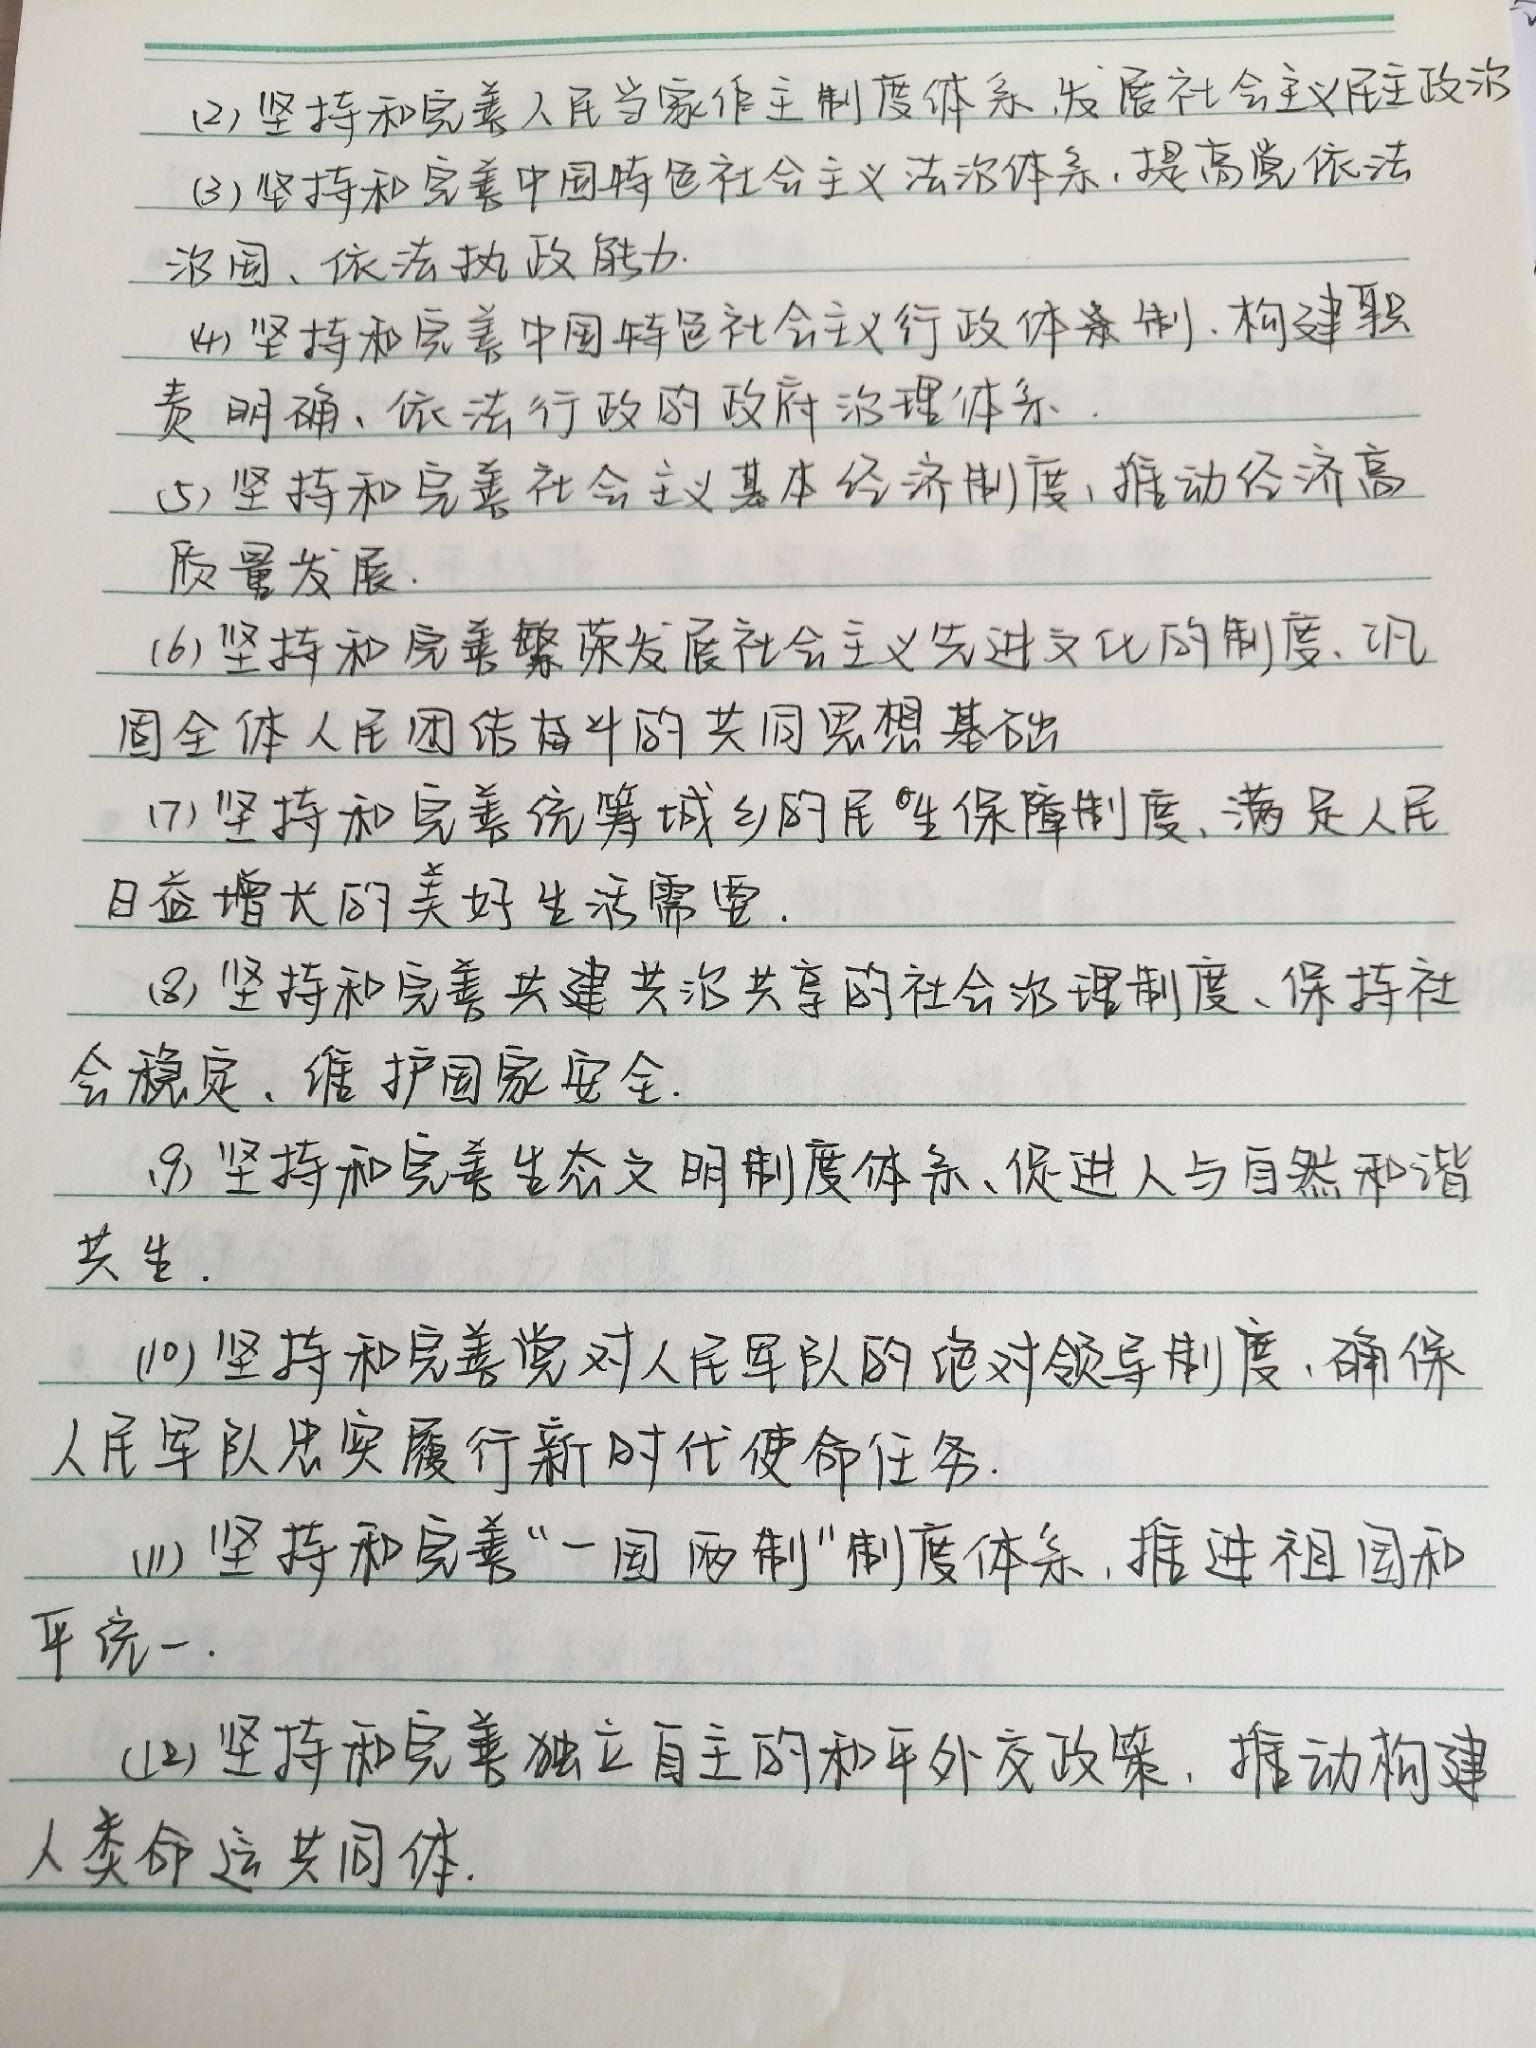 (2) 坚持和完善人民当家作主制度体系、发展社会主义民主政治
(3) 坚持和完善中国特色社会主义法治体系、提高党依法
治国、依法执政能力.
(4) 坚持和完善中国特色社会主义行政体制、构建职
责明确、依法行政的政府治理体系.
(5) 坚持和完善社会主义基本经济制度、推动经济高
质量发展.
(6) 坚持和完善繁荣发展社会主义先进文化的制度、巩
固全体人民团结奋斗的共同思想基础
(7) 坚持和完善统筹城乡的民生保障制度、满足人民
日益增长的美好生活需要.
(8) 坚持和完善共建共治共享的社会治理制度、保持社
会稳定、维护国家安全.
(9) 坚持和完善生态文明制度体系、促进人与自然和谐
共生.
(10) 坚持和完善党对人民军队的绝对领导制度、确保
人民军队忠实履行新时代使命任务.
(11) 坚持和完善“一国两制”制度体系、推进祖国和
平统一.
(12) 坚持和完善独立自主的和平外交政策、推动构建
人类命运共同体.